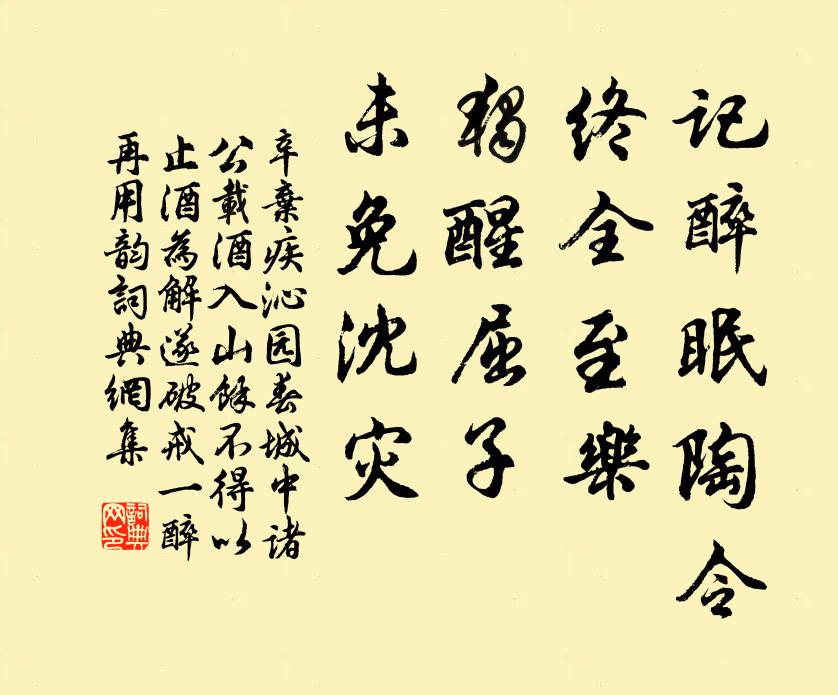 记醉眠陶令
终全至樂
獨醒屈子
未免沈灾
辛棄疾沁园春城中諸
公載酒入山餘不得以
止酒為解遂破戒一醉
再用韵詞典網集
詞典
网印